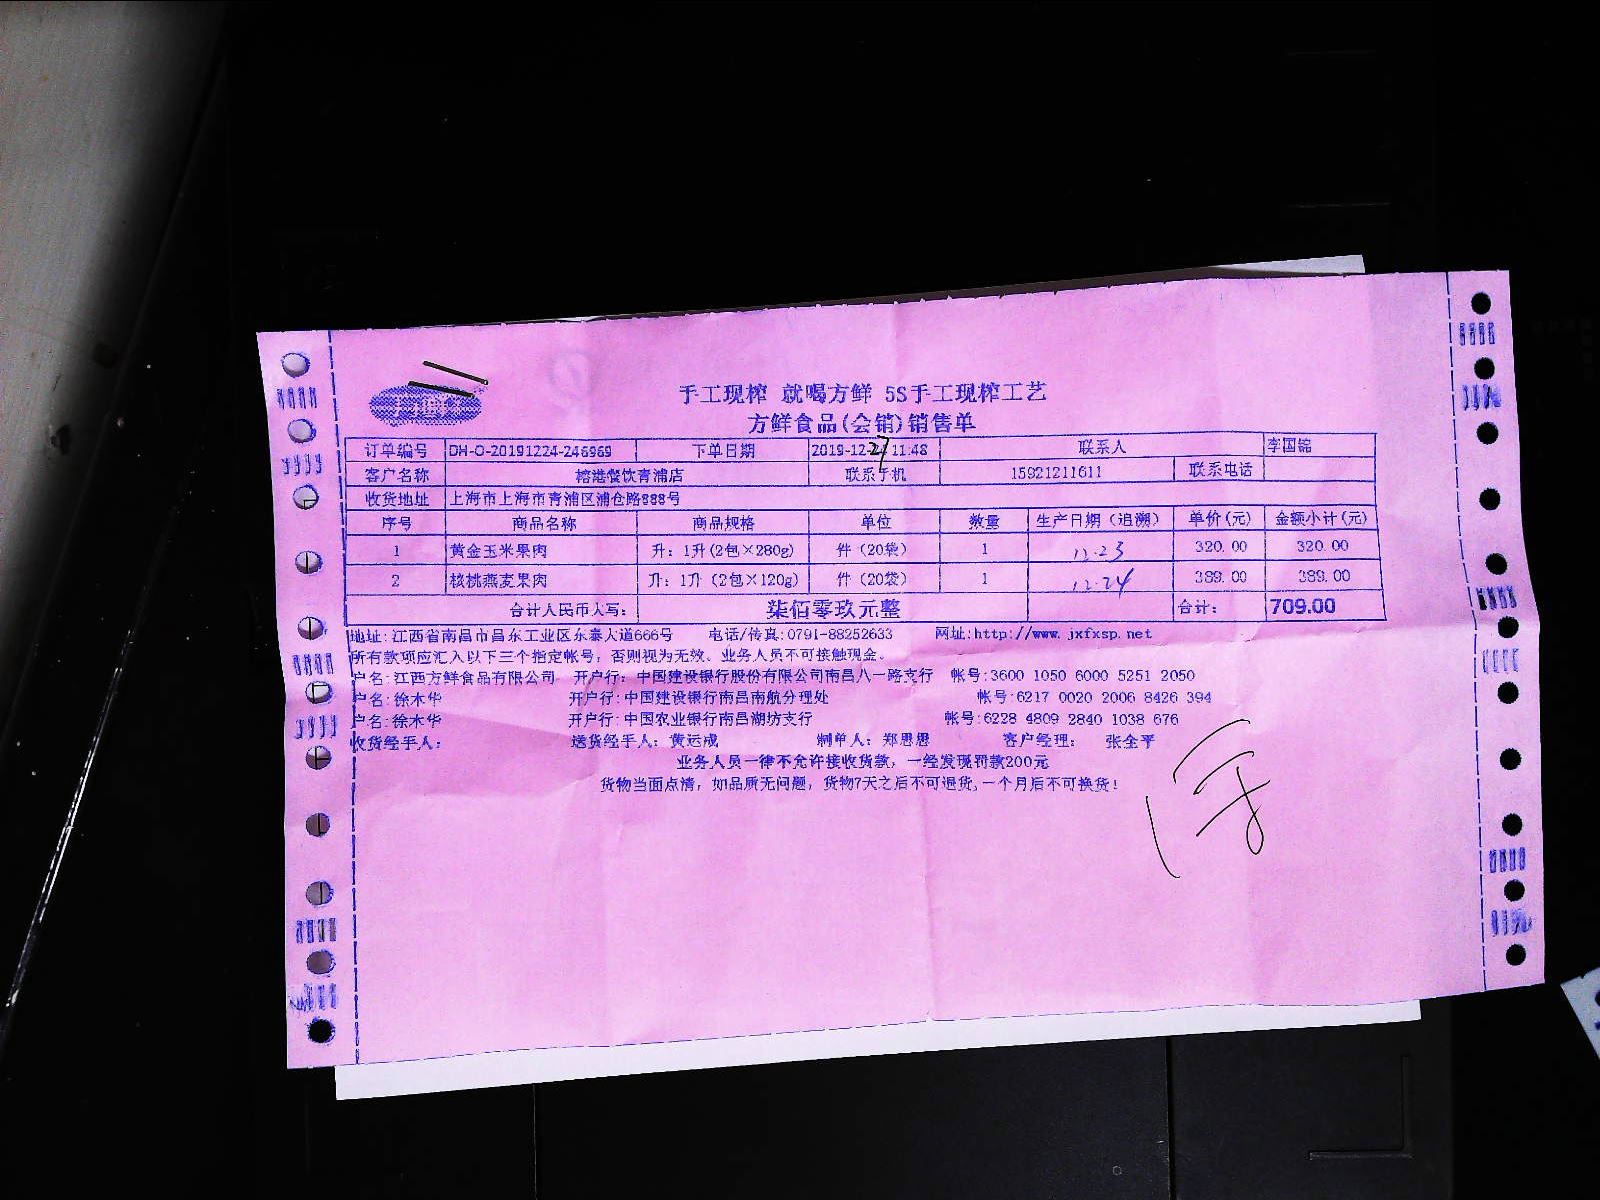 手工现榨 就喝方鲜 5S手工现榨工艺
方鲜食品(会销)销售单
订单编号 DH-O-20191224-246969 下单日期 2019-12-27 11:48 联系人 李国锦
客户名称 榕港餐饮青浦店 联系手机 15921211611 联系电话
收货地址 上海市上海市青浦区浦仓路888号
序号 商品名称 商品规格 单位 数量 生产日期（追溯） 单价(元) 金额小计(元)
1 黄金玉米果肉 升：1升(2包×280g) 件（20袋） 1 12.23 320.00 320.00
2 核桃燕麦果肉 升：1升（2包×120g） 件（20袋） 1 12.24 389.00 389.00
合计人民币大写： 柒佰零玖元整 合计： 709.00
地址:江西省南昌市昌东工业区东泰大道666号 电话/传真:0791-88252633 网址:http://www.jxfxsp.net
所有款项应汇入以下三个指定帐号，否则视为无效。业务人员不可接触现金。
户名:江西方鲜食品有限公司 开户行：中国建设银行股份有限公司南昌八一路支行 帐号:3600 1050 6000 5251 2050
户名:徐木华 开户行:中国建设银行南昌南航分理处 帐号:6217 0020 2006 8426 394
户名:徐木华 开户行:中国农业银行南昌湖坊支行 帐号:6228 4809 2840 1038 676
收货经手人： 送货经手人：黄运成 制单人：郑思思 客户经理： 张全平
业务人员一律不允许接收货款，一经发现罚款200元
货物当面点清，如品质无问题，货物7天之后不可退货,一个月后不可换货！